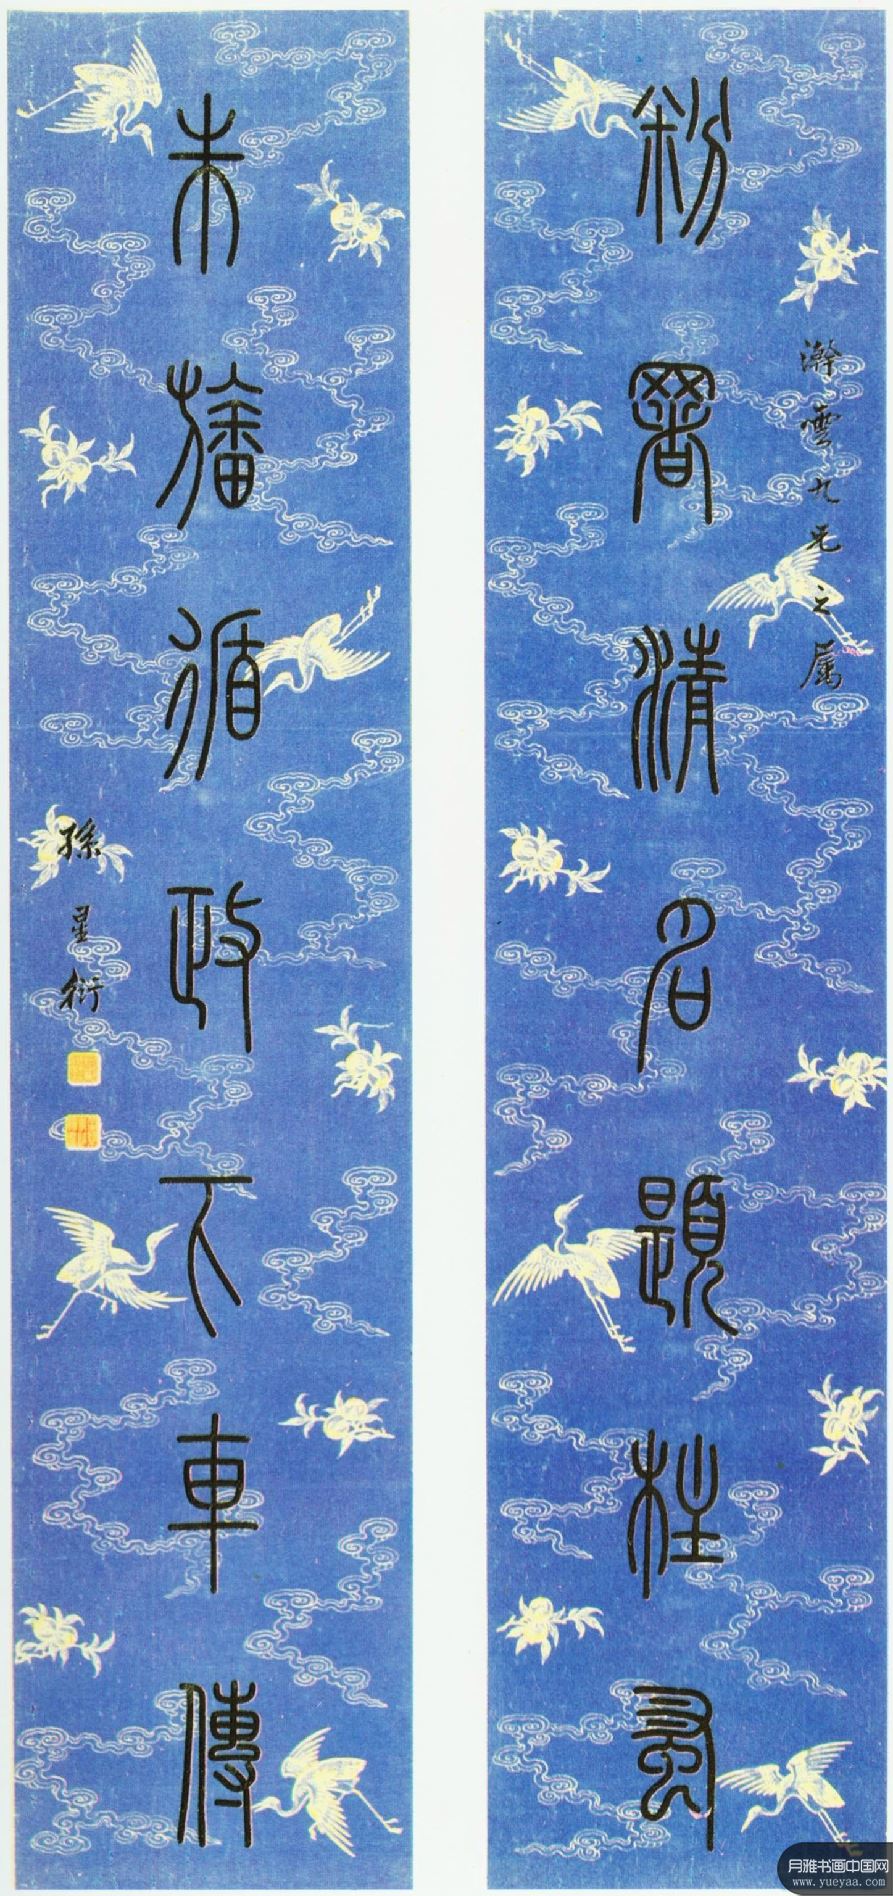 粉署清名題柱夙
雲九兄之属
朱轓循政下車傳
孫星衍
月雅书画中国网
www.yueyaa.com